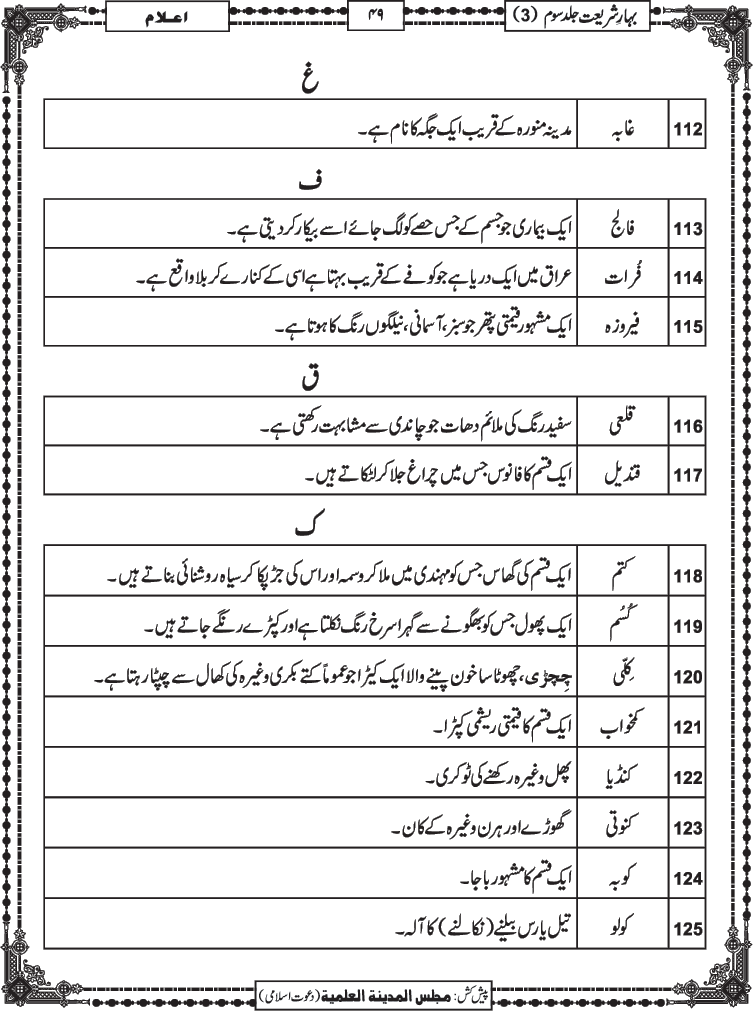 بہارِ شریعت جلد سوم (3)
۴۹
اعلام
غ
112 غابہ مدینہ منورہ کے قریب ایک جگہ کا نام ہے۔
ف
113 فالج ایک بیماری جو جسم کے جس حصے کو لگ جائے اسے بیکار کر دیتی ہے۔
114 فُرات عراق میں ایک دریا ہے جو کوفے کے قریب بہتا ہے اسی کے کنارے کربلا واقع ہے۔
115 فیروزہ ایک مشہور قیمتی پتھر جو سبز، آسمانی، نیلگوں رنگ کا ہوتا ہے۔
ق
116 قلعی سفید رنگ کی ملائم دھات جو چاندی سے مشابہت رکھتی ہے۔
117 قندیل ایک قسم کا فانوس جس میں چراغ جلا کر لٹکاتے ہیں۔
ک
118 کتم ایک قسم کی گھاس جس کو مہندی میں ملا کر وسمہ اور اس کی جڑ پکا کر سیاہ روشنائی بناتے ہیں۔
119 کُسُم ایک پھول جس کو بھگونے سے گہرا سرخ رنگ نکلتا ہے اور کپڑے رنگے جاتے ہیں۔
120 کِلّی چِچڑی، چھوٹا سا خون پینے والا ایک کیڑا جو عموماً کتے بکری وغیرہ کی کھال سے چپٹا رہتا ہے۔
121 کمخواب ایک قسم کا قیمتی ریشمی کپڑا۔
122 کنڈیا پھل وغیرہ رکھنے کی ٹوکری۔
123 کنوتی گھوڑے اور ہرن وغیرہ کے کان۔
124 کوبہ ایک قسم کا مشہور باجا۔
125 کولو تیل یا رس بیلنے (نکالنے) کا آلہ۔
پیش کش: مجلس المدينة العلمية (دعوت اسلامی)